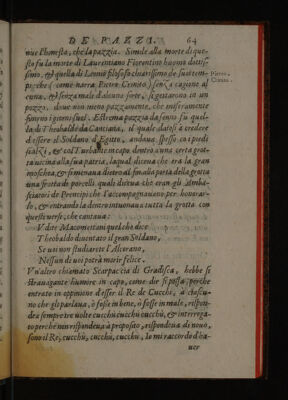 DE PAZZI. 64
nue l'honesta, che la pazzia. Simile alla morte di que-
sto fu la morte di Laurentiano Fiorentino huomo dottis-
simo, & quella di Leonio filosofo chiarissimo de suoi tem-
pi, che (come narra Pietro Crinito) senza cagione al-
cuna, & senza male d'alcuna sorte, si gettarono in un
pozzo, doue non meno pazzamente, che miseramente
Pietro Crinito.
finirono i giorni suoi. Estrema pazzia da senno fu quel-
la di Theobaldo da Cantiana, il quale datosi a credere
d'essere il Soldano d'Egitto, andaua spesso co i piedi
scalzi, & col Turbante in capo dentro a una certa grot-
ta uicina alla sua patria, laqual diceua che era la gran
moschea, & si menaua dietro al fin alla porta della grotta
una frotta di porcelli, quali diceua che eran gli Amba-
sciatori de Prencipi che l'accompagnauano per honorar-
lo, & entrando la dentro intonaua tutta la grotta con
questi uerse, che cantaua:
V dite Macomettani quel che dice
Theobaldo diuentato il gran Soldano,
Se uoi non studiarete l'Alcorano,
Nessun di uoi potrà morir felice.
Vn'altro chiamato Scarpaccia di Gradisca, hebbe sì
strauagante humore in capo, come dir si possa, perche
entrato in oppinione d'esser il Re de Cucchi, à ciascu-
no che gli parlaua, ò fosse in bene, ò fosse in male, rispon-
dea sempre tre uolte cucchù cucchù cucchù, & interroga-
to perche non rispondeua à proposito, rispondeua di nouo,
sono il Re, cucchù, cucchù, cucchù. Io mi raccordo d'ha-
uer